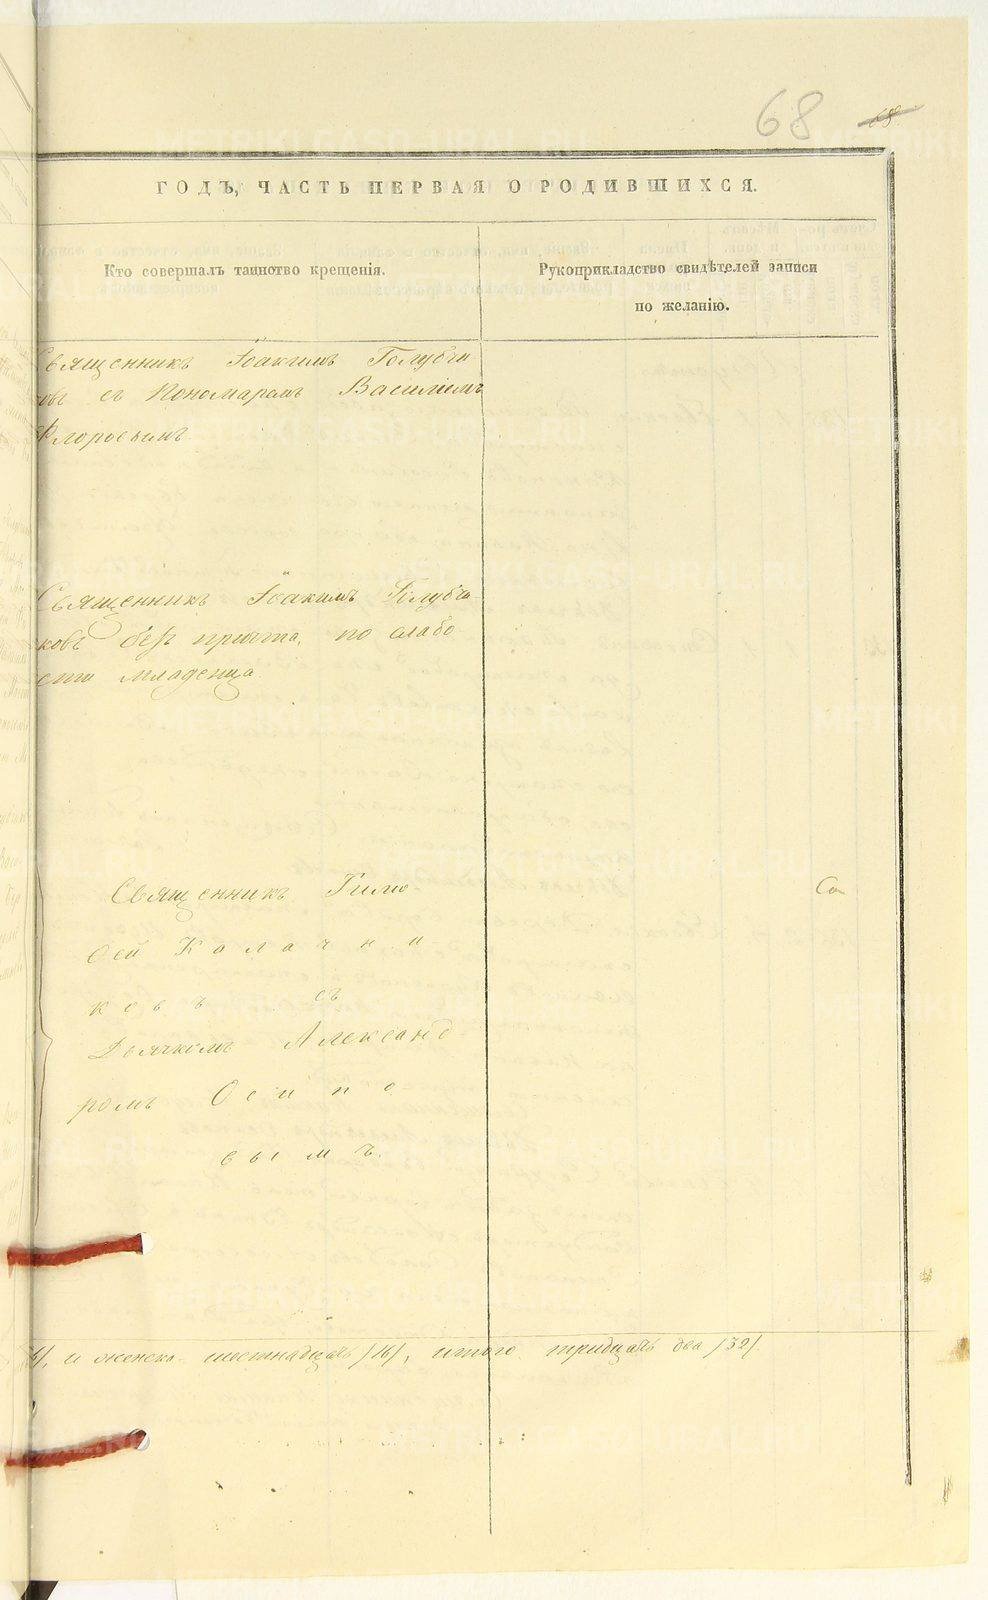 68 68
ГОДЪ, ЧАСТЬ ПЕРВАЯ О РОДИВШИХСЯ.
Кто совершалъ таинство крещенія.
Рукоприкладство свидѣтелей записи
по желанію.
Священникъ Іоакимъ Голубчи
ковъ съ Пономаремъ Василіемъ
Флоровымъ
Священникъ Іоакимъ Голубчи
ковъ безъ причта, по слабо
сти младенца
Священникъ Тимо
ѳей Калачни
ковъ съ
Дьячкомъ Александ
ромъ Осипо
вымъ.
Со
и женска шестнадцать /16/, итого тридцать два /32/.
METRIKI.GASO-URAL.RU